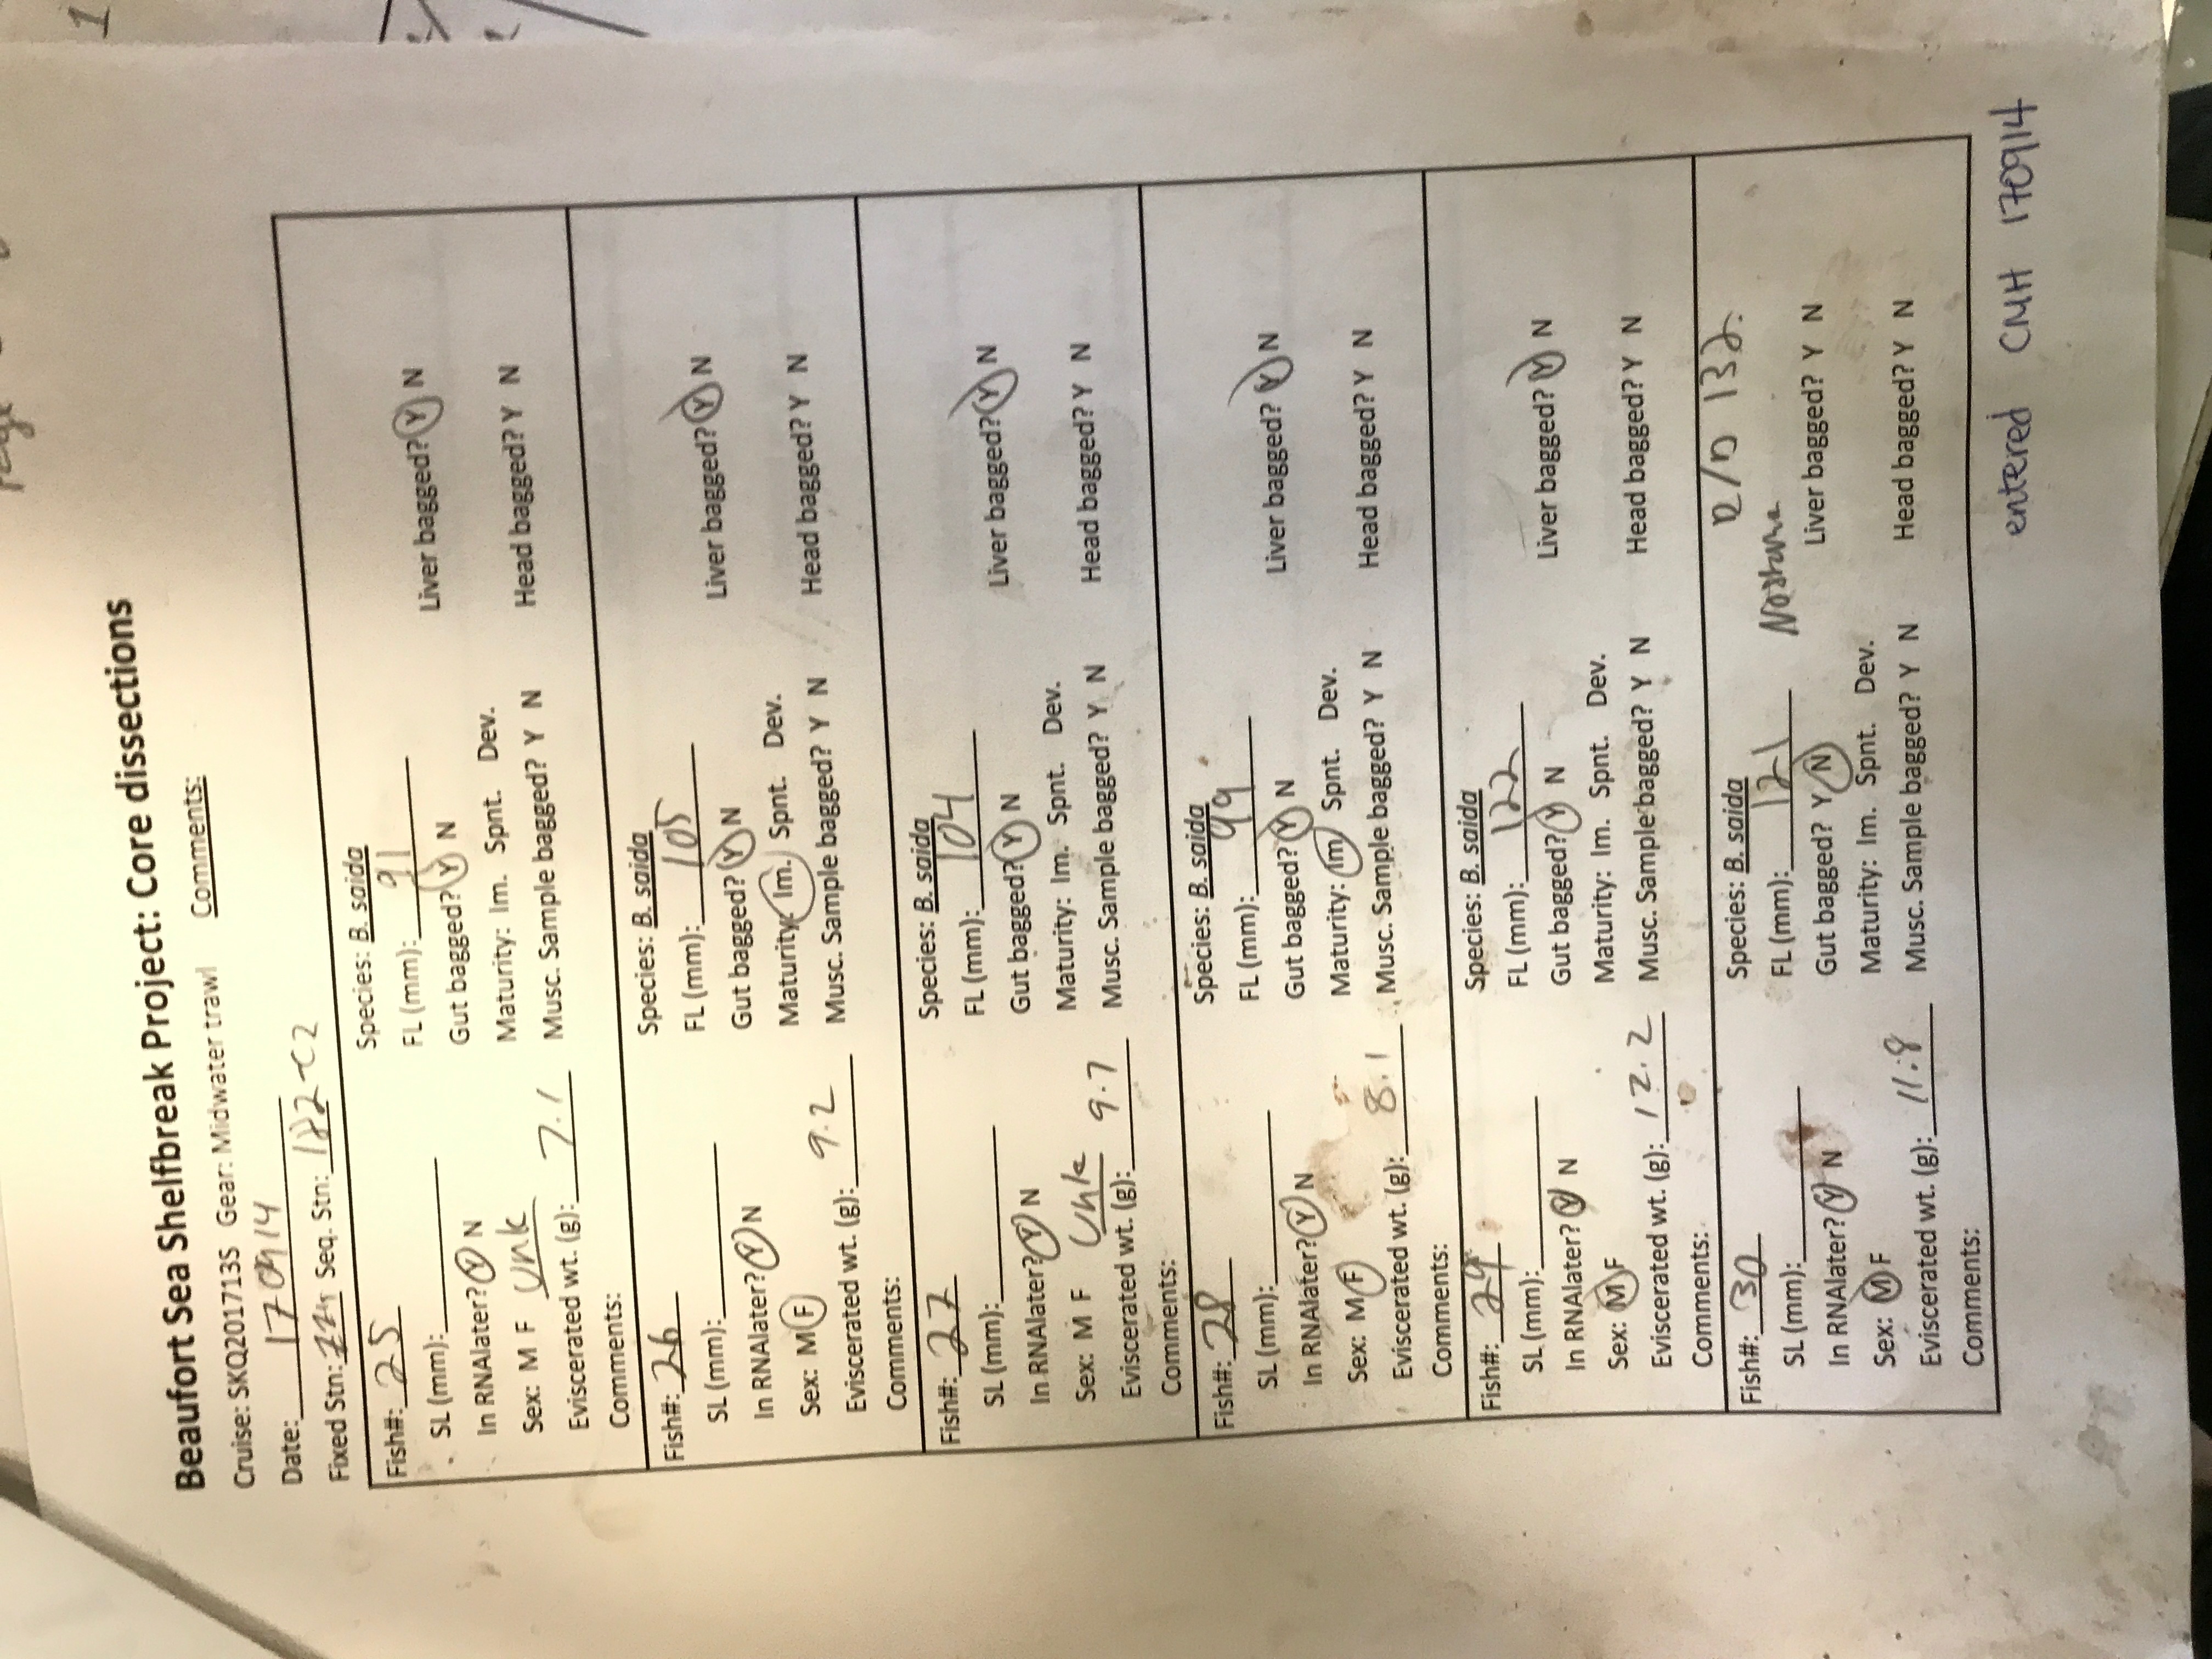 1
Page
Beaufort Sea Shelfbreak Project: Core dissections
Cruise: SKQ201713S Gear: Midwater trawl Comments:
Date: 170914
Fixed Stn: Seq. Stn: 122-C2
Fish#: 25 Species: B. saida
SL (mm): FL (mm): 91
In RNAlater? Y N Gut bagged? Y N Liver bagged? Y N
Sex: M F Unk Maturity: Im. Spnt. Dev.
Eviscerated wt. (g): 7.1 Musc. Sample bagged? Y N Head bagged? Y N
Comments:
Fish#: 26 Species: B. saida
SL (mm): FL (mm): 105
In RNAlater? Y N Gut bagged? Y N Liver bagged? Y N
Sex: M F Maturity: Im. Spnt. Dev.
Eviscerated wt. (g): 9.2 Musc. Sample bagged? Y N Head bagged? Y N
Comments:
Fish#: 27 Species: B. saida
SL (mm): FL (mm): 104
In RNAlater? Y N Gut bagged? Y N Liver bagged? Y N
Sex: M F Unk Maturity: Im. Spnt. Dev.
Eviscerated wt. (g): 9.7 Musc. Sample bagged? Y N Head bagged? Y N
Comments:
Fish#: 28 Species: B. saida
SL (mm): FL (mm): 99
In RNAlater? Y N Gut bagged? Y N Liver bagged? Y N
Sex: M F Maturity: Im Spnt. Dev.
Eviscerated wt. (g): 8.1 Musc. Sample bagged? Y N Head bagged? Y N
Comments:
Fish#: 29 Species: B. saida
SL (mm): FL (mm): 122
In RNAlater? Y N Gut bagged? Y N Liver bagged? Y N
Sex: M F Maturity: Im. Spnt. Dev.
Eviscerated wt. (g): 12.2 Musc. Sample bagged? Y N Head bagged? Y N
Comments:
Fish#: 30 Species: B. saida 132.
SL (mm): FL (mm): 121
In RNAlater? Y N Gut bagged? Y N Liver bagged? Y N
Sex: M F Maturity: Im. Spnt. Dev.
Eviscerated wt. (g): 11.8 Musc. Sample bagged? Y N Head bagged? Y N
Comments:
entered CMH 170914